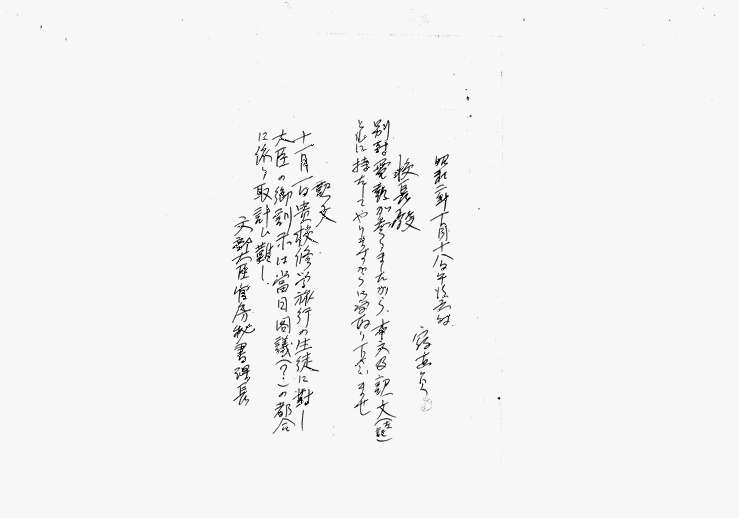 昭和二年十月十八日午後五時
宿直員
校長殿
別封電報が参りましたから、本文及訳文(左記)
ともに持たしてやりますから御受取り下さいませ
訳文
十一月一日貴校修学旅行の生徒に対し
大臣の御訓示は当日閣議(?)の都合
に係り取計ひ難し
文部大臣官房秘書課長